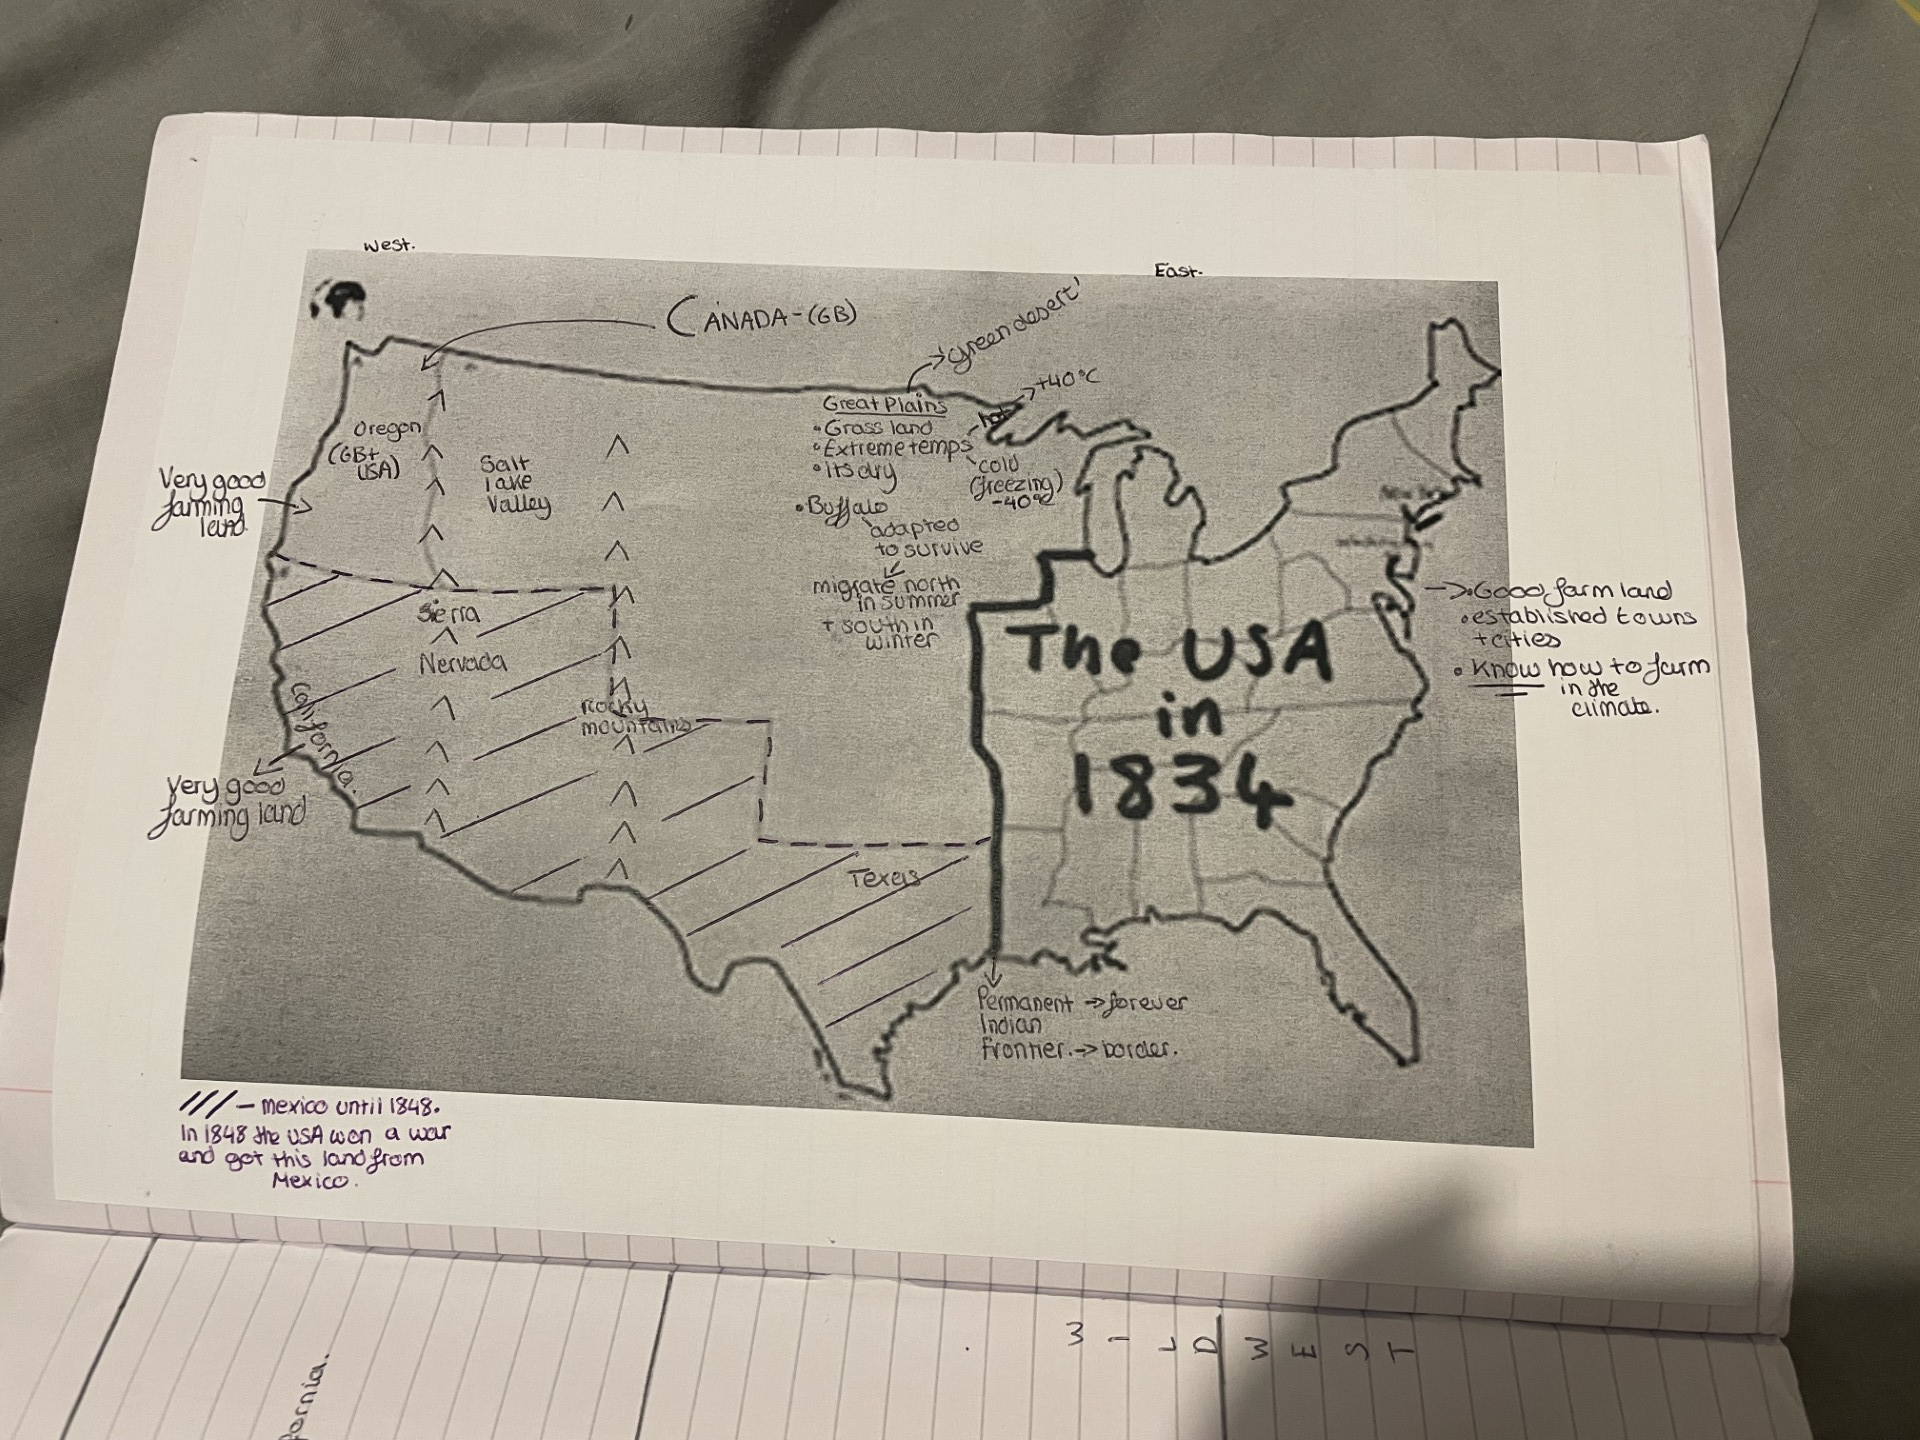 West.
East.
CANADA-(GB)
'green desert'
+40°C
hot
Great Plains
• Grass land
• Extreme temps
• Its dry
cold
(freezing)
-40°C
• Buffalo
adapted
to survive
migrate north
in summer
+ south in
winter
Oregon
(GB+
USA)
Salt
Lake
Valley
Very good
farming
land
Sierra
Nervada
Rocky
mountains
California.
Very good
farming land
Texas
The USA
in
1834
New York
• Good farm land
• established towns
+ cities
• Know how to farm
in the
climate.
Permanent → forever
Indian
Frontier. → border.
/// - mexico until 1848.
In 1848 the USA won a war
and got this land from
Mexico.
WILD WEST
fornia.